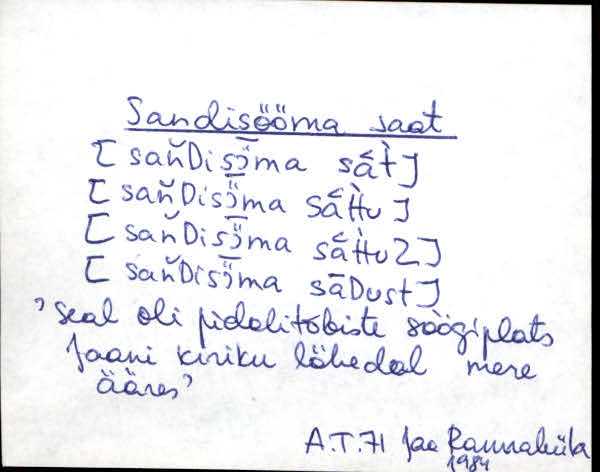 Sandisööma saat
[sań̆Disɔ̄̈ma sā̆̀t]
[sań̆Disɔ̄̈ma sā̆̀ttu]
[sań̆Disɔ̄̈ma sā̆̀ttuƧ]
[sań̆Disɔ̄̈ma sāDust]
'seal oli pidalitõbiste söögiplats
Jaani kiriku lähedal mere
ääres'
A.T. 71 Jaa Rannaküla
1984